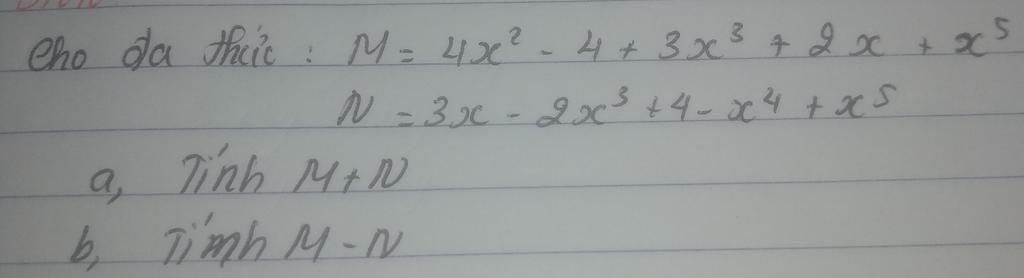 Cho đa thức : M = 4x² - 4 + 3x³ + 2x + x⁵
N = 3x - 2x³ + 4 - x⁴ + x⁵
a, Tính M + N
b, Tính M - N